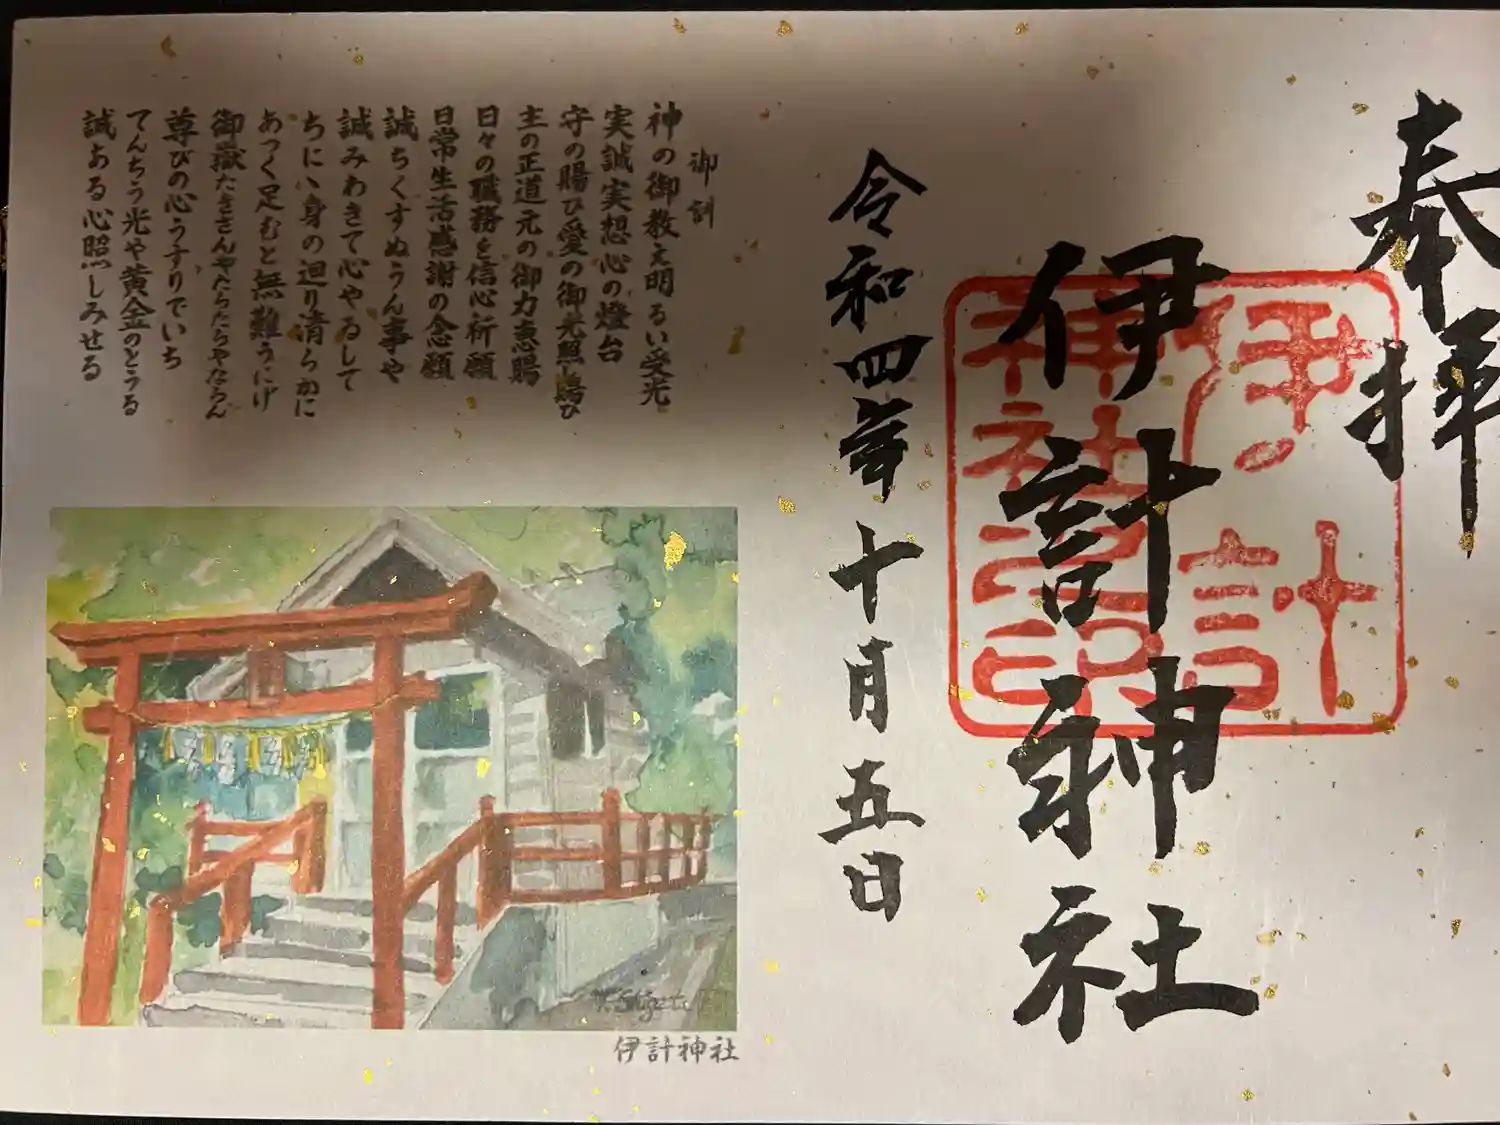 奉拝
伊計神社
伊計
神社之印
令和四年十月五日
御訓
神の御教え明るい受光
実誠実想心の燈台
守の賜ひ愛の御光照し賜ひ
主の正道元の御力恵賜
日々の職務を信心祈願
日常生活感謝の念願
誠ちくすぬうん事や
誠みわきて心やゐして
ちに、身の廻り清らかに
あつく足むと無難うにげ
御嶽たきさんやたらたらやたるん
尊びの心うすりでいち
てんちう光や黄金のとうる
誠ある心照しみせる
T. Shigeta
伊計神社